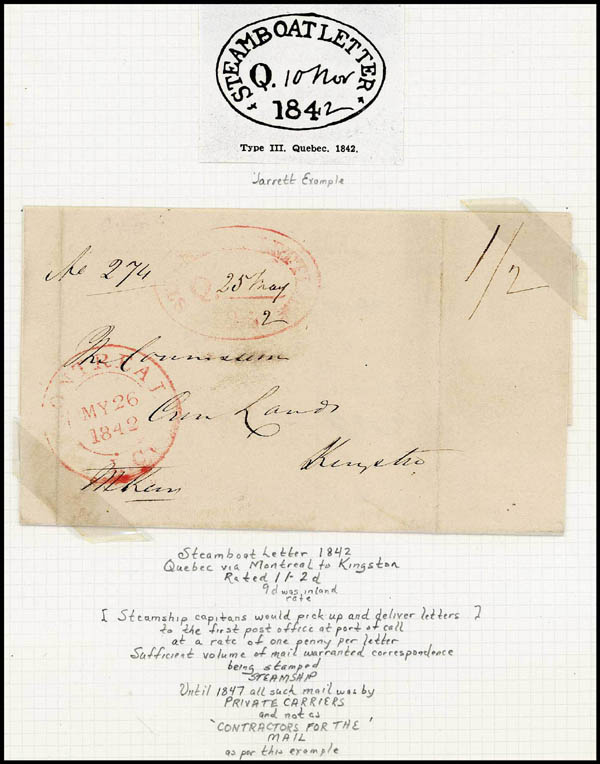 STEAMBOAT LETTER
Q. 10 Nov
1842
Type III. Quebec. 1842.
Jarrett Example
No 274
1/2
Q.
25 May
2
The
MONTREAL
MY 26
1842
L.C.
Crown Lands
Kingston
Steamboat Letter 1842
Quebec via Montreal to Kingston
Rated 1/- 2d
9d was inland
rate
[ Steamship capitans would pick up and deliver letters ]
to the first post office at port of call
at a rate of one penny per letter
Sufficient volume of mail warranted correspondence
being stamped
STEAMSHIP
Until 1847 all such mail was by
PRIVATE CARRIERS
and not as
'CONTRACTORS FOR THE'
MAIL
as per this example